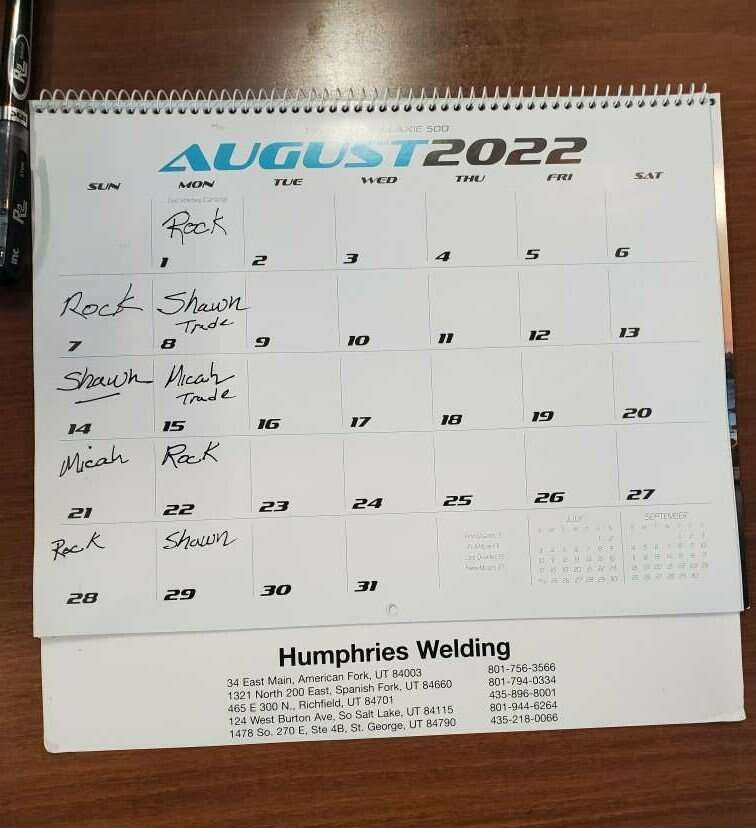 AUGUST 2022
SUN MON TUE WED THU FRI SAT
Rock
1 2 3 4 5 6
Rock Shawn
Trade
7 8 9 10 11 12 13
Shawn Micah
Trade
14 15 16 17 18 19 20
Micah Rock
21 22 23 24 25 26 27
Rock Shawn
JULY SEPTEMBER
28 29 30 31
Humphries Welding
34 East Main, American Fork, UT 84003 801-756-3566
1321 North 200 East, Spanish Fork, UT 84660 801-794-0334
465 E 300 N., Richfield, UT 84701 435-896-8001
124 West Burton Ave, So Salt Lake, UT 84115 801-944-6264
1478 So. 270 E, Ste 4B, St. George, UT 84790 435-218-0066